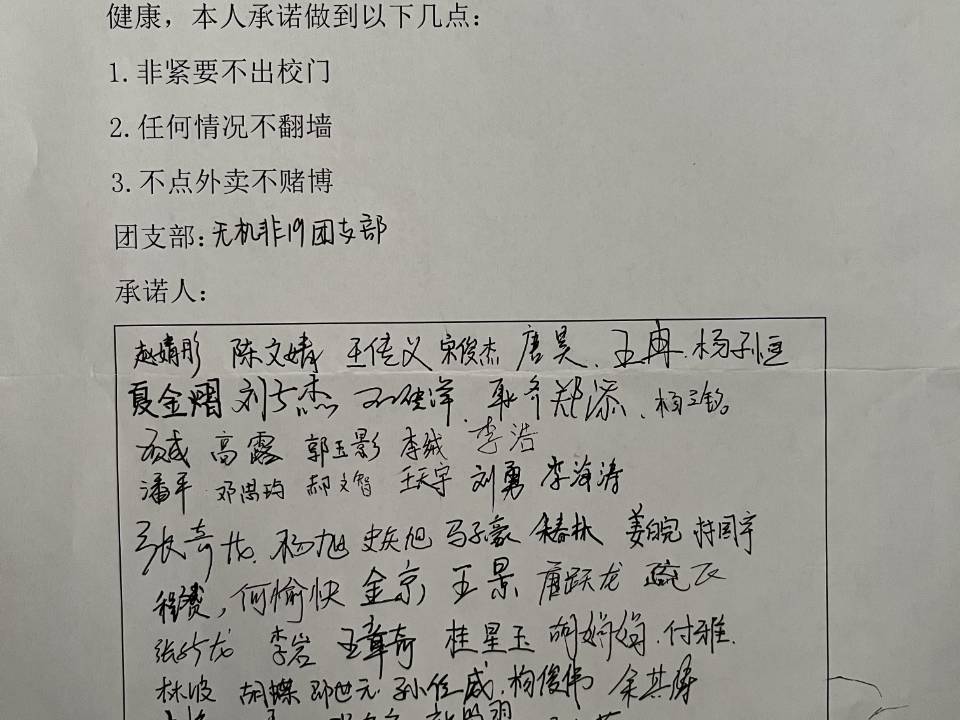 健康，本人承诺做到以下几点：
1.非紧要不出校门
2.任何情况不翻墙
3.不点外卖不赌博
团支部：无机非19团支部
承诺人：
赵婧彤 陈文婧 王传义 宋俊杰 唐昊 王冉 杨子恒
夏金熠 刘 杰 郑添
高露 郭玉影 李绒 李浩
潘平 郝文智 王天宇 刘勇 李海涛
张奇龙 杨旭 马子豪 余春林 姜皖 符国宇
程赟 何愉快 金京 王景 唐跃龙
李岩 王章奇 桂星玉 胡娟娟 付雅
林波 胡蝶 邵世元 孙位威 杨俊伟 余其